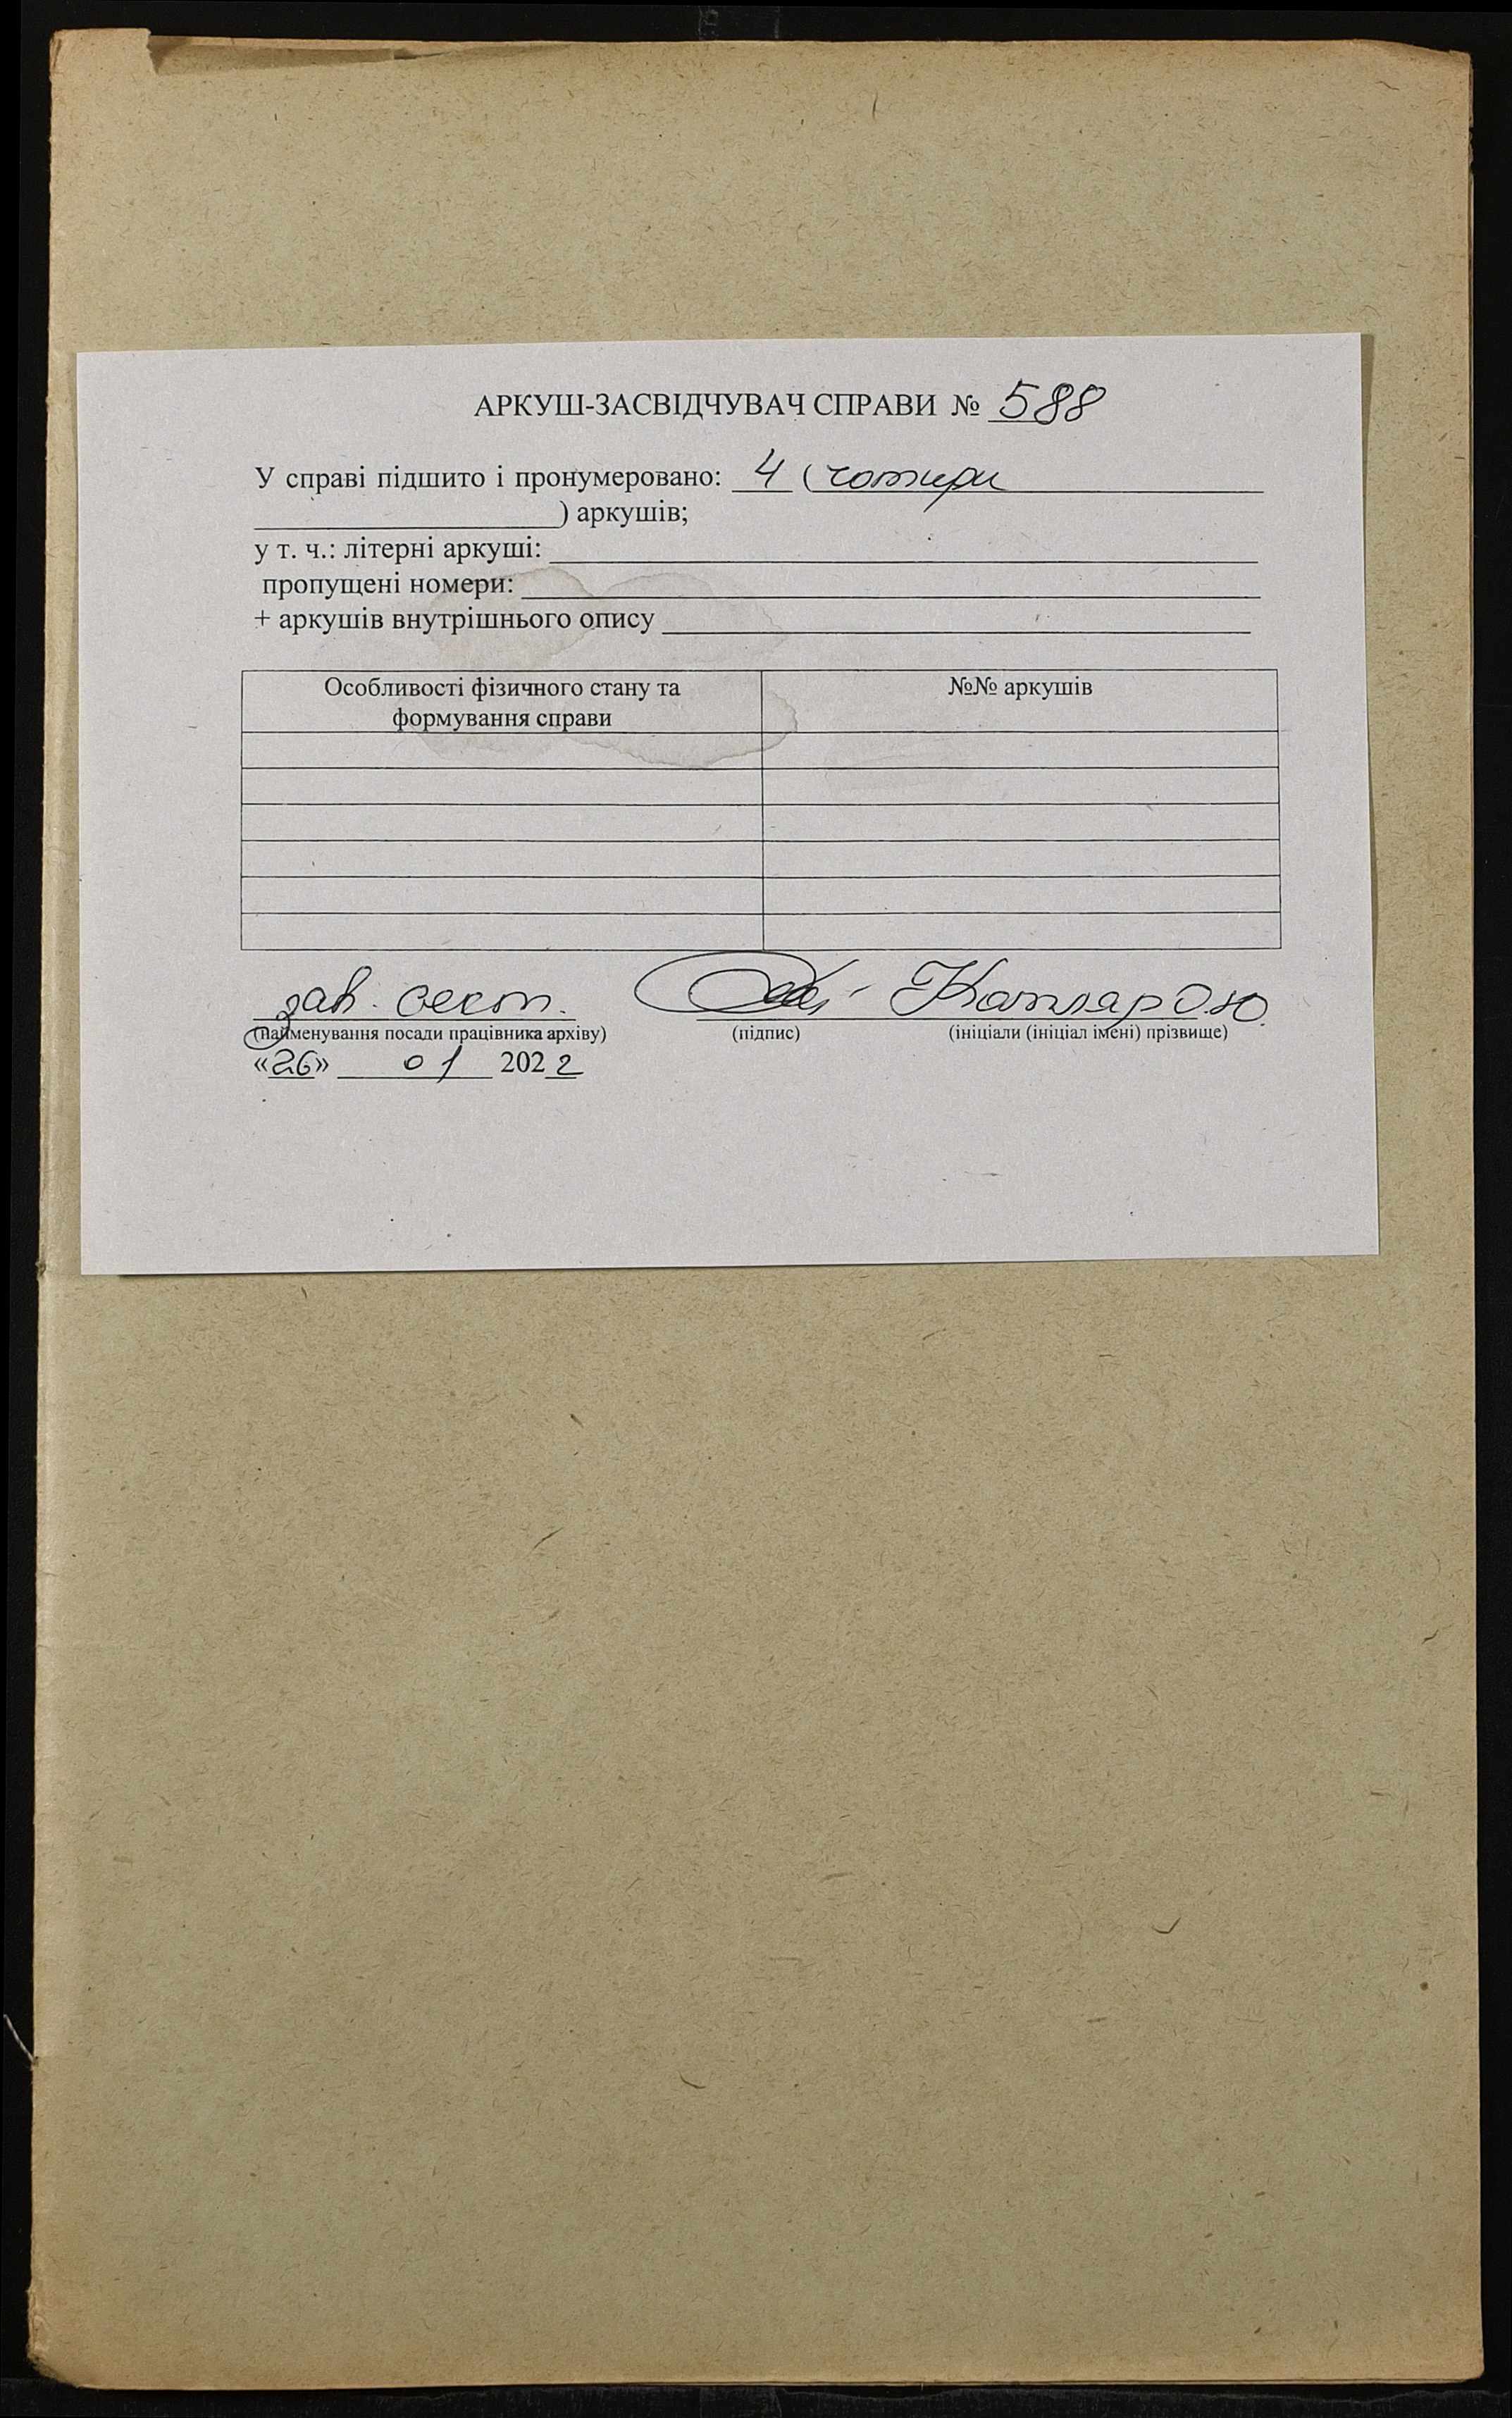 АРКУШ-ЗАСВІДЧУВАЧ СПРАВИ № 588
У справі підшито і пронумеровано: 4 (чотири
) аркушів;
у т. ч.: літерні аркуші:
пропущені номери:
+ аркушів внутрішнього опису
Особливості фізичного стану та формування справи
№№ аркушів
зав. сект. Котляр О.Ю.
(найменування посади працівника архіву) (підпис) (ініціали (ініціал імені) прізвище)
«26» 01 2022